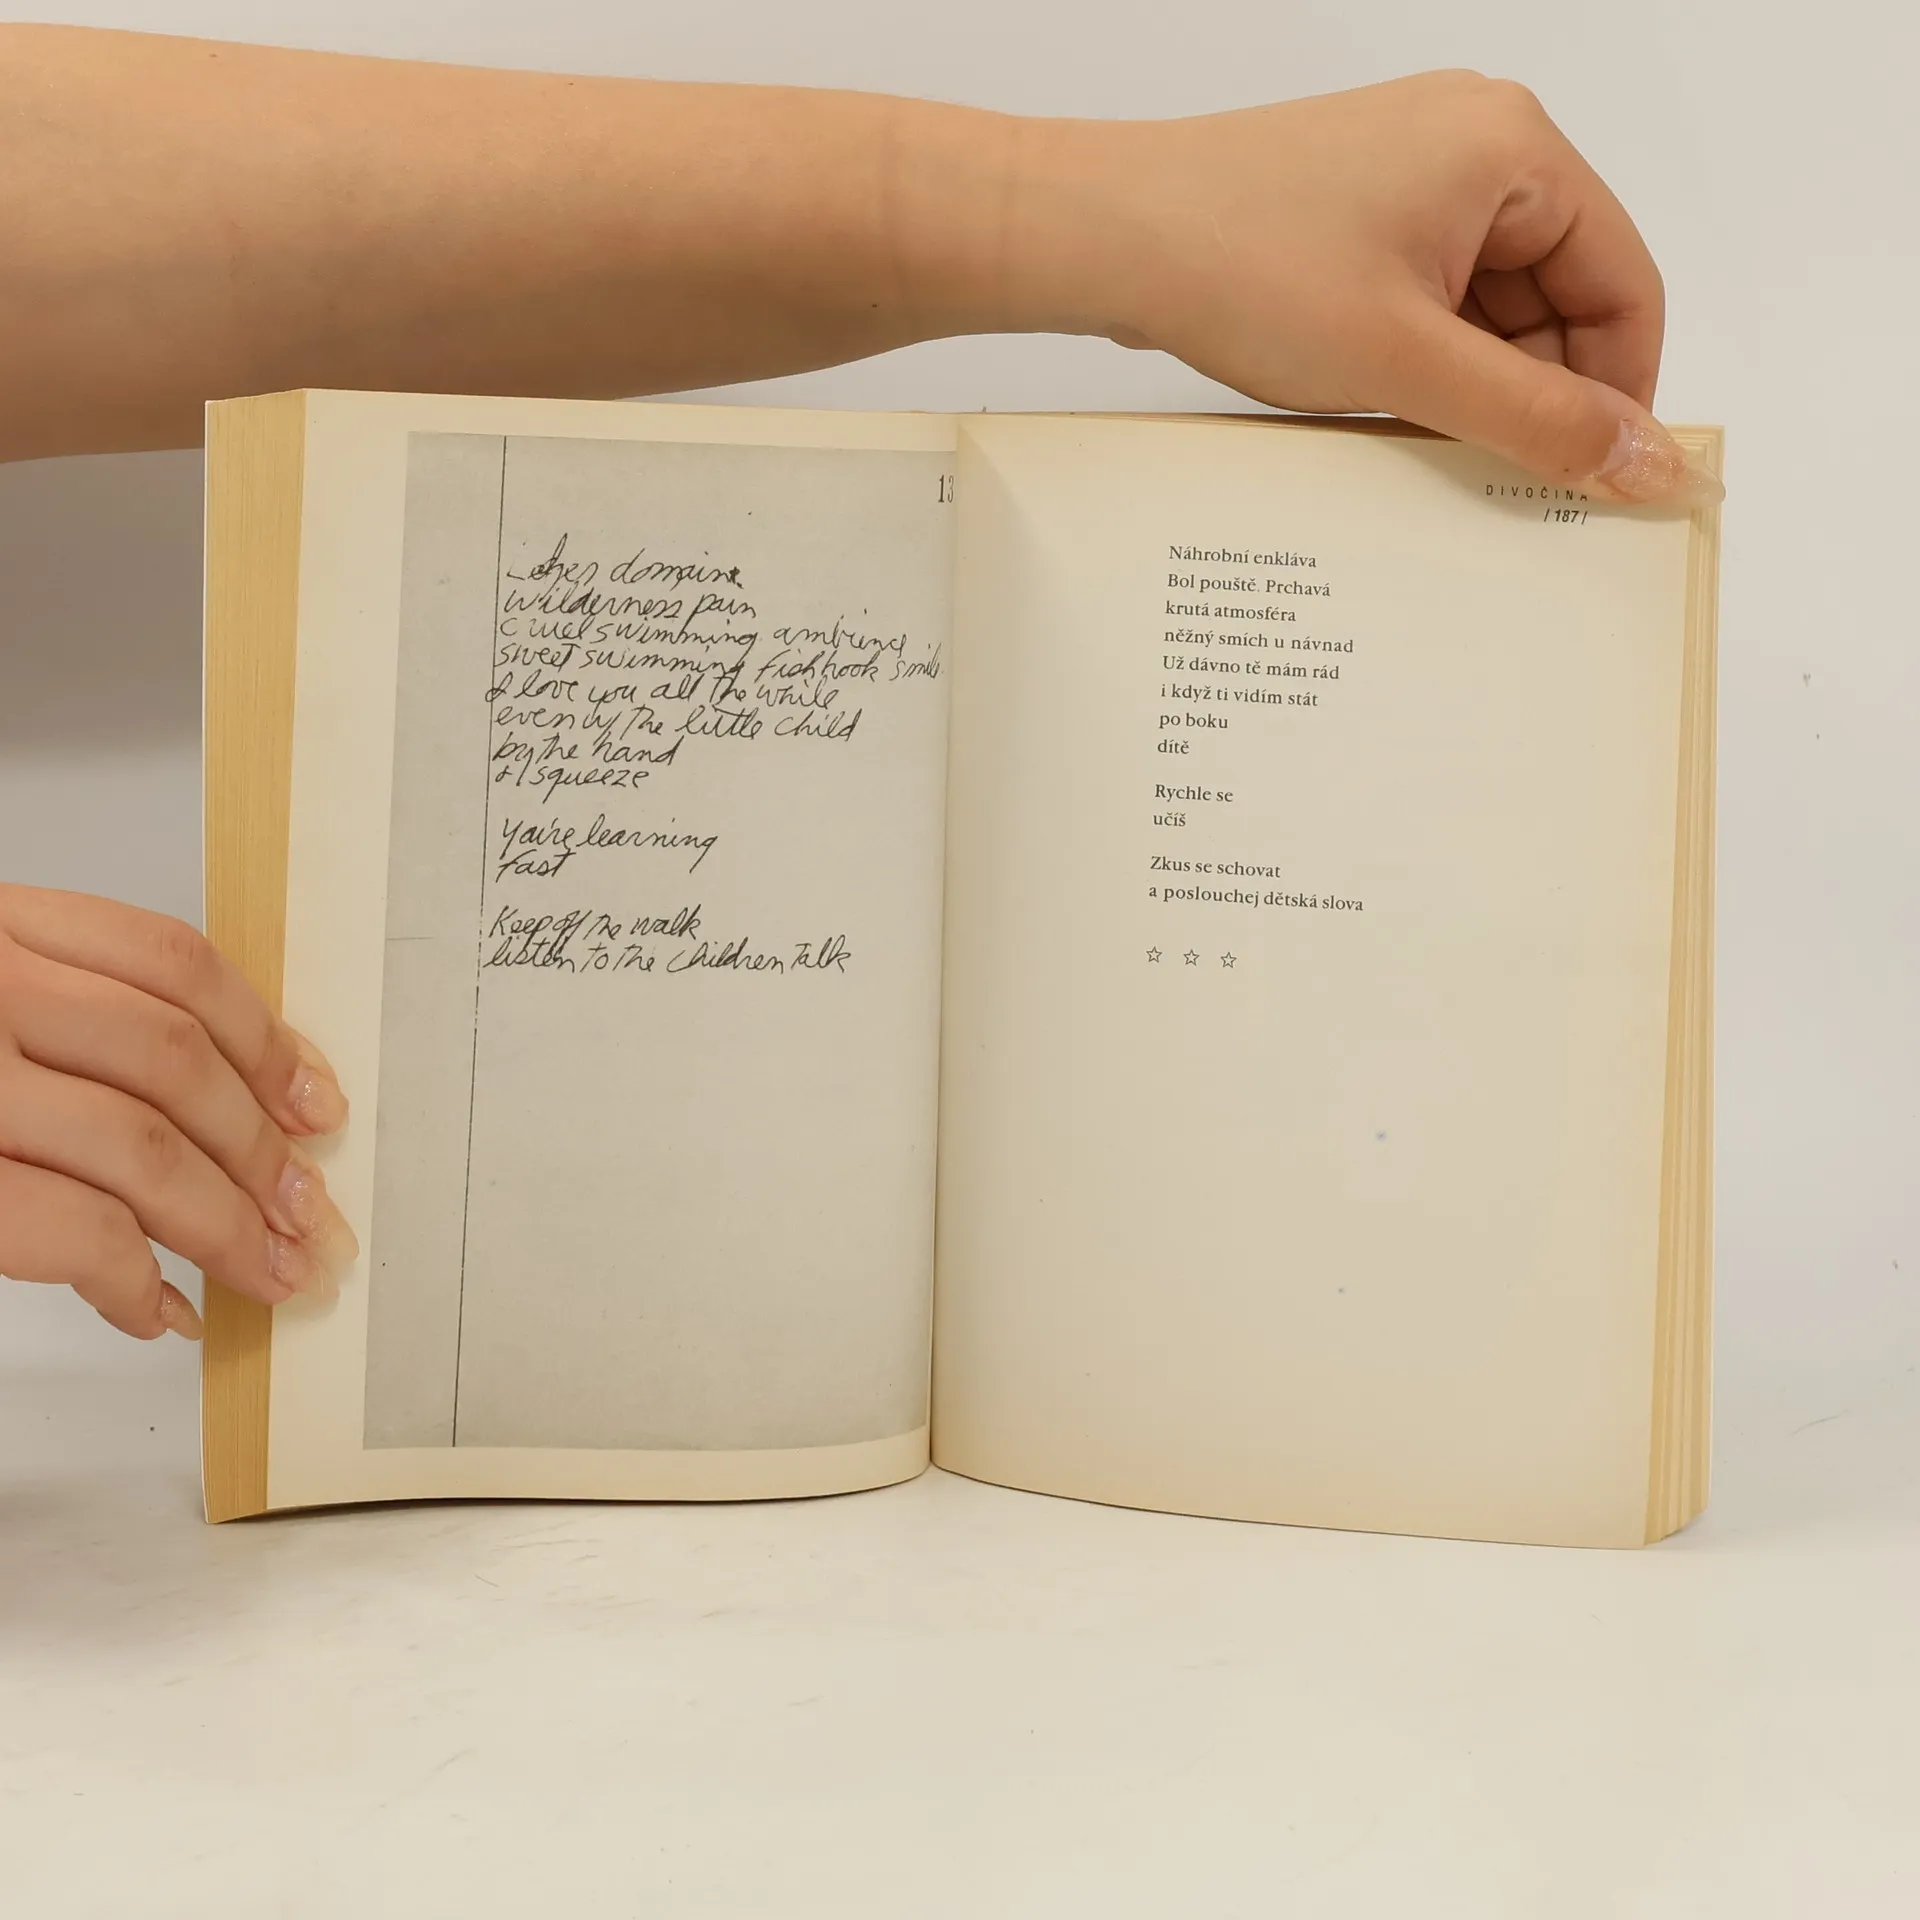 13
domain
wilderness pain
cruel swimming ambience
sweet swimming fishhook smile
I love you all the while
even w/ the little child
by the hand
& squeeze
You're learning
fast
Keep off the walk
listen to the children talk
DIVOČINA
/ 187 /
Náhrobní enkláva
Bol pouště. Prchavá
krutá atmosféra
něžný smích u návnad
Už dávno tě mám rád
i když ti vidím stát
po boku
dítě
Rychle se
učíš
Zkus se schovat
a poslouchej dětská slova